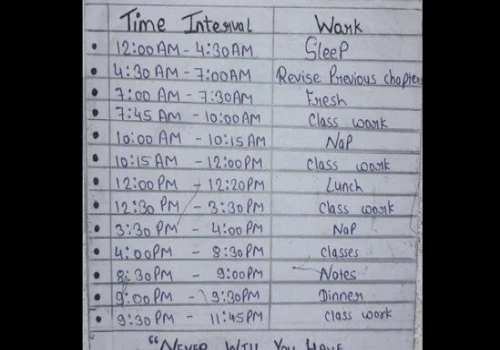 Time Interval Work
• 12:00AM - 4:30AM Sleep
• 4:30AM - 7:00AM Revise Previous chapter
• 7:00AM - 7:30AM Fresh
• 7:45AM - 10:00AM Class work
• 10:00AM - 10:15AM Nap
• 10:15AM - 12:00PM class work
• 12:00PM - 12:20PM Lunch
• 12:30PM - 3:30PM class work
• 3:30PM - 4:00PM Nap
• 4:00PM - 8:30PM classes
• 8:30PM - 9:00PM Notes
• 9:00PM - 9:30PM Dinner
• 9:30PM - 11:45PM class work
"NEVER WILL YOU HAVE